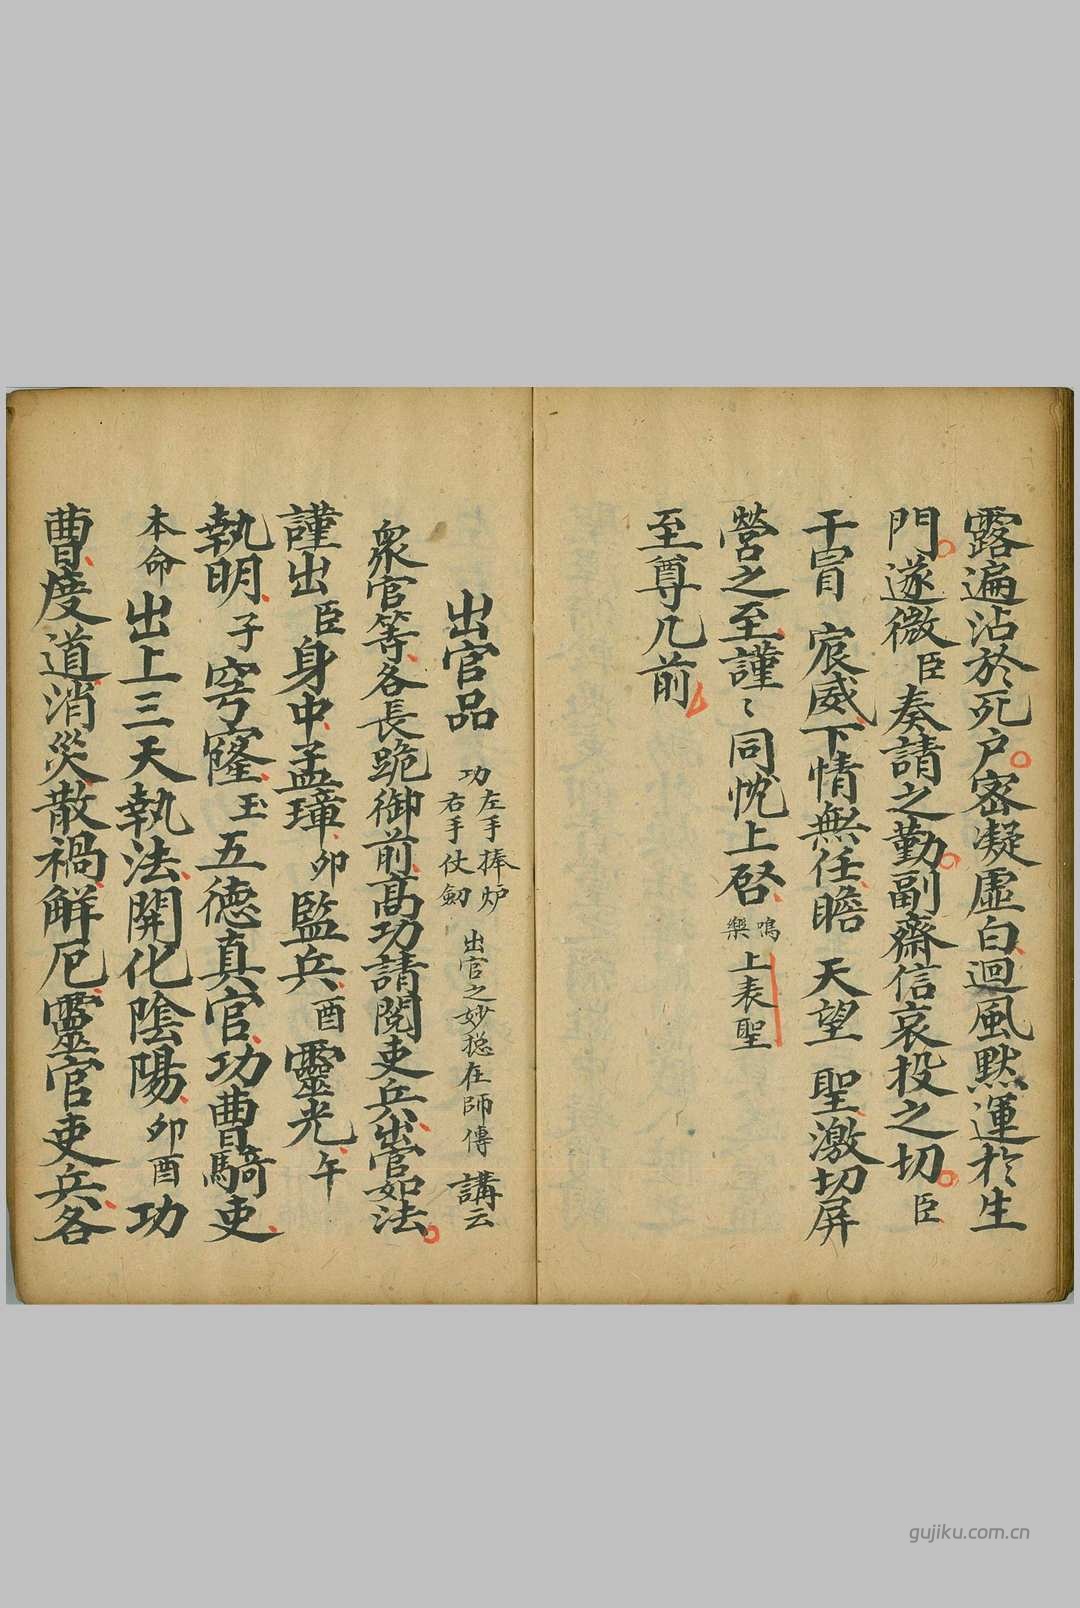 露遍沾於死户密凝虛白迴風黙運於生
門遂微臣奏請之勤副齋信哀投之切臣
干冒 宸威下情無任瞻 天望 聖激切屏
營之至謹〻同忱上啓鳴樂上表聖
至尊几前
出官品 功左手捧炉右手仗劒 出官之妙稔在師傳 講云
衆官等各長跪御前髙功請閱吏兵出官如法
謹出臣身中孟璋卯監兵酉靈光午
執明子穹窿玉五德真官功曹騎吏
本命 出上三天執法開化陰陽卯酉功
曹度道消災散禍解厄靈官吏兵各
gujiku.com.cn